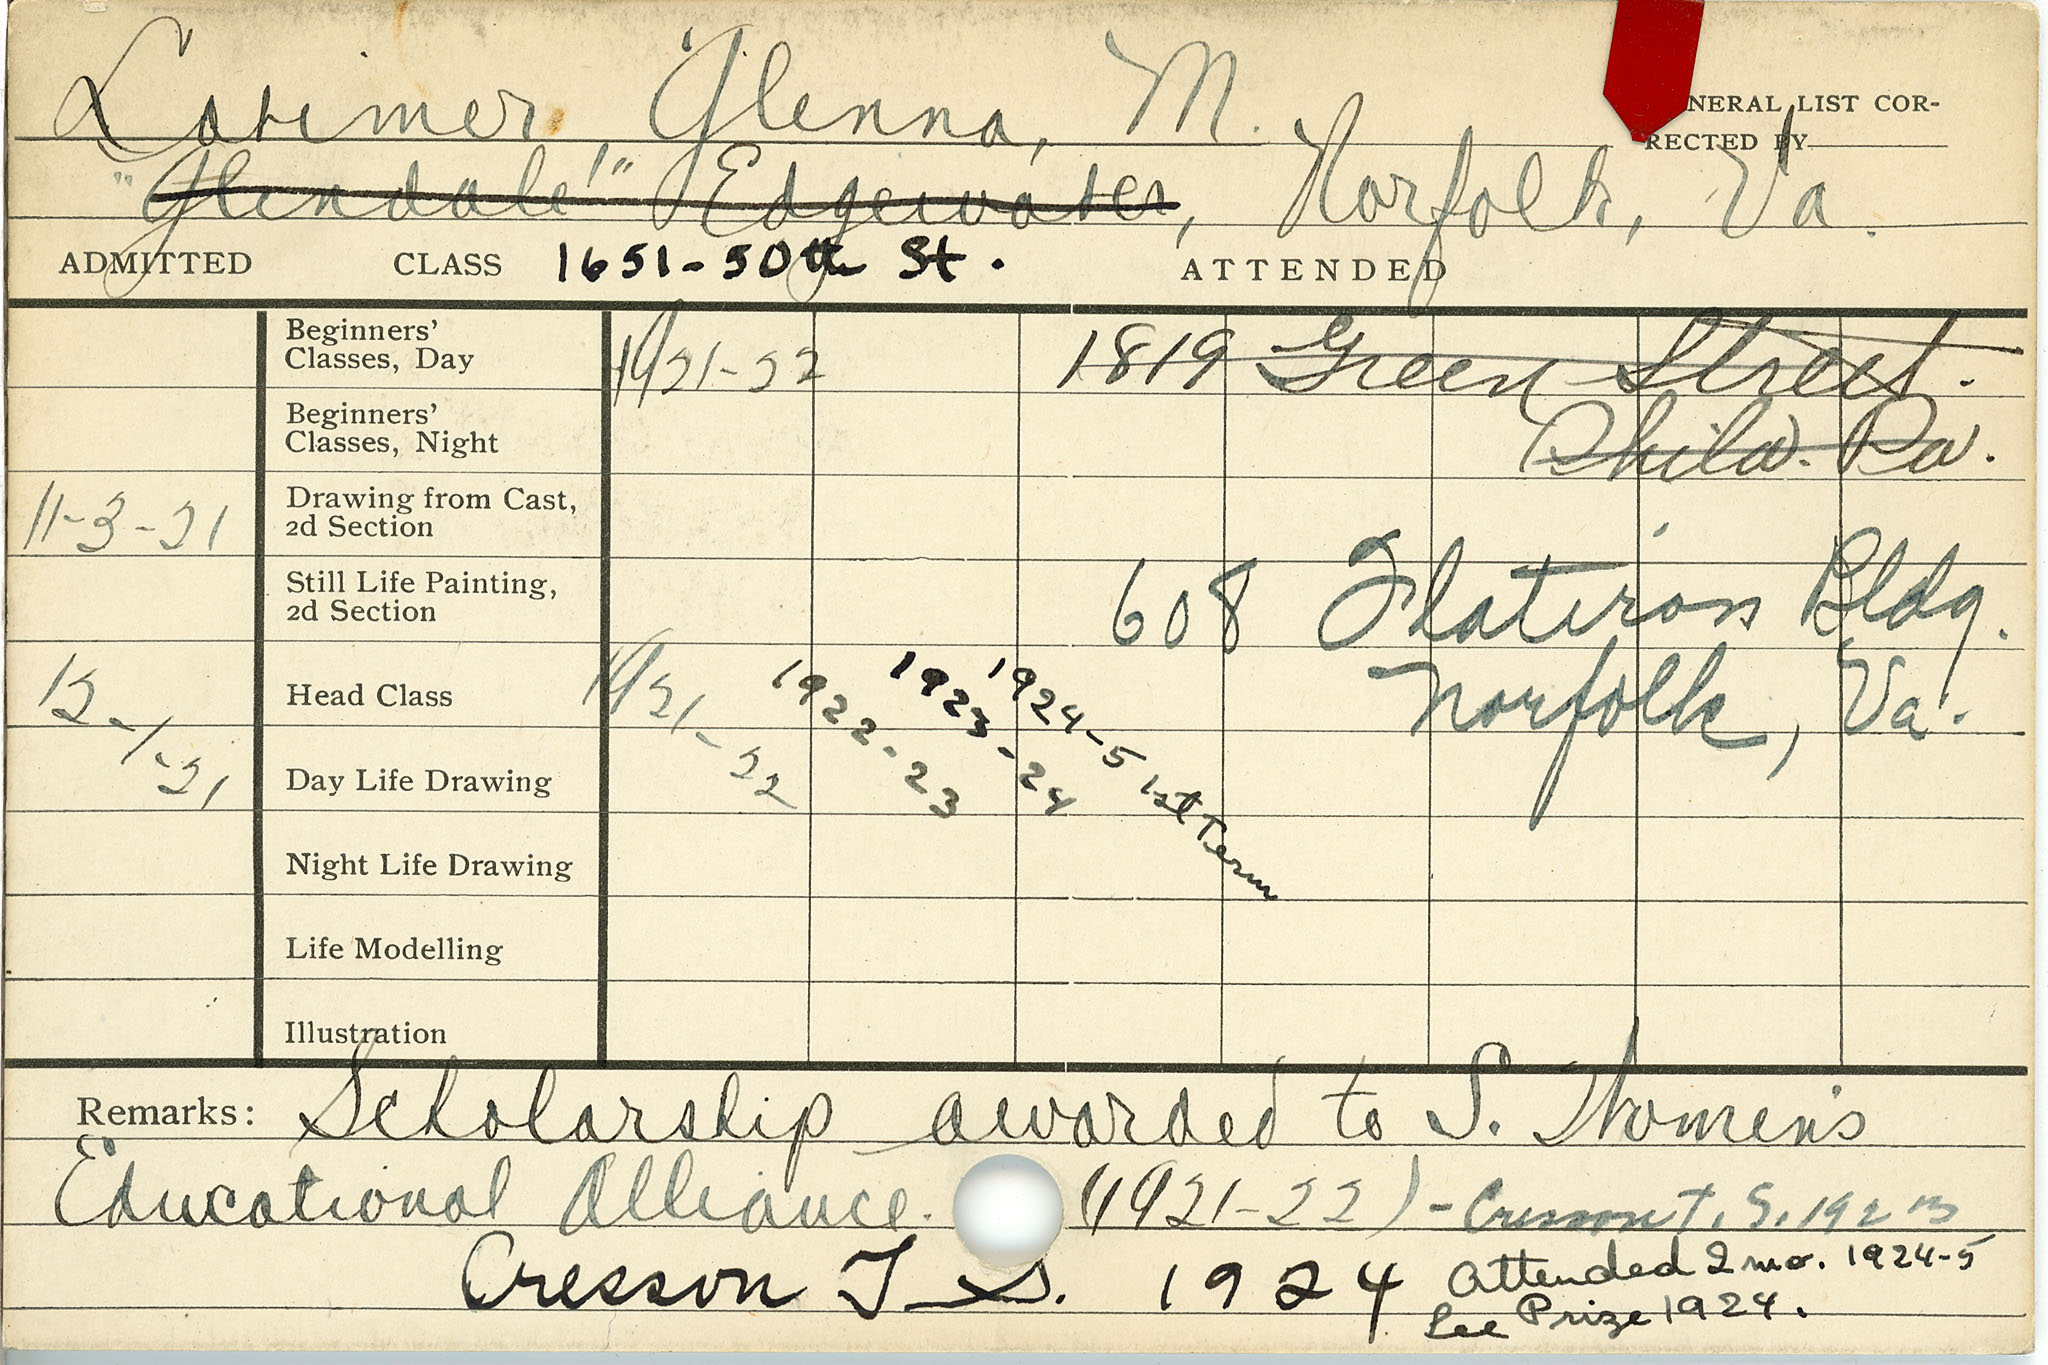 Latimer, Glenna, M.
NERAL LIST COR-
RECTED BY
"Glendale" Edgewater, Norfolk, Va.
ADMITTED CLASS 1651-50th St. ATTENDED
Beginners'
Classes, Day 1921-22 1819 Green Street.
Phila. Pa.
Beginners'
Classes, Night
11-3-21 Drawing from Cast,
2d Section
Still Life Painting,
2d Section
608 Flatiron Bldg.
Norfolk, Va.
12-1-21 Head Class 1921-22 1922-23 1923-24 1924-5 1st Term
Day Life Drawing
Night Life Drawing
Life Modelling
Illustration
Remarks: Scholarship awarded to S. Women's
Educational Alliance. (1921-22) - Cresson T. S. 1923
Cresson T. S. 1924 Attended 2 mo. 1924-5
Lee Prize 1924.